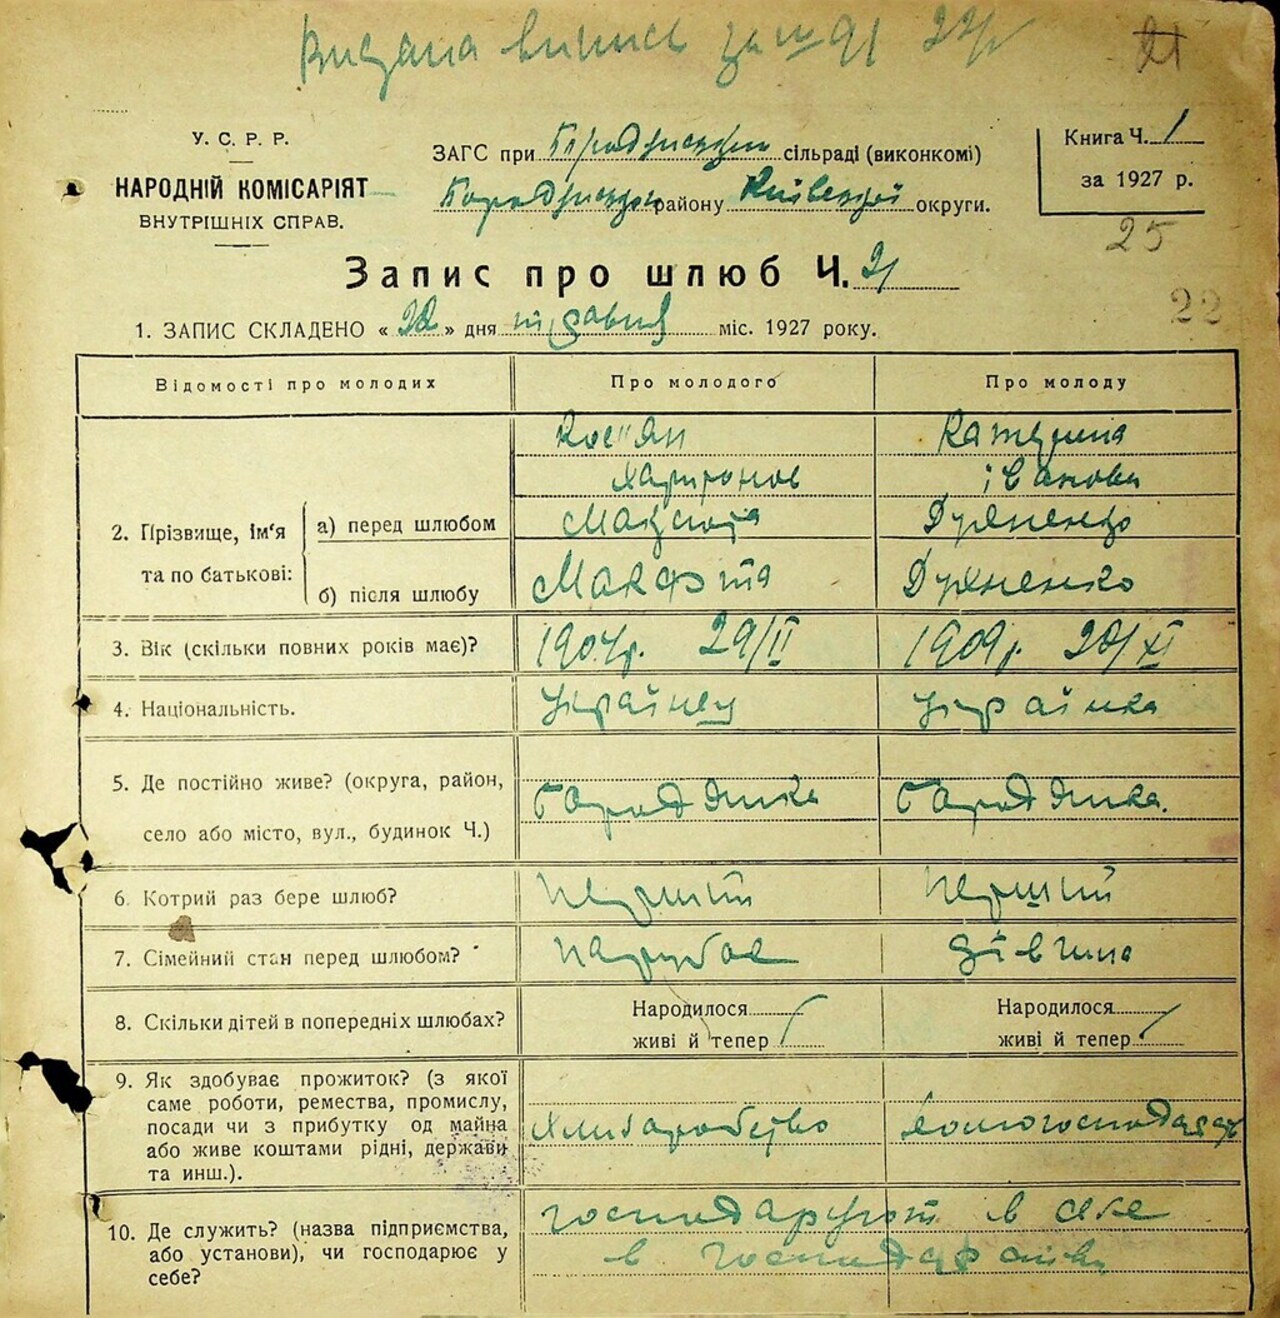 Видана випись за № 91 21
У. С. Р. Р.
НАРОДНІЙ КОМІСАРІЯТ
ВНУТРІШНІХ СПРАВ.
ЗАГС при сільраді (виконкомі)
району Київської округи.
Книга Ч. 1
за 1927 р.
25
Запис про шлюб Ч. 21
22
1. ЗАПИС СКЛАДЕНО « » дня міс. 1927 року.
Відомості про молодих Про молодого Про молоду
Катерина
Харитонов Іванови
2. Прізвище, ім'я та по батькові:
а) перед шлюбом
б) після шлюбу
3. Вік (скільки повних років має)? 1904р. 29/II 1909р. 28/XI
4. Національність. Українец Українка
5. Де постійно живе? (округа, район,
село або місто, вул., будинок Ч.)
6. Котрий раз бере шлюб? перший перший
7. Сімейний стан перед шлюбом? парубок дівчина
8. Скільки дітей в попередніх шлюбах? Народилося Народилося
живі й тепер живі й тепер
9. Як здобуває прожиток? (з якої
саме роботи, ремества, промислу,
посади чи з прибутку од майна
або живе коштами рідні, держави
та инш.).
Хлиборобство
10. Де служить? (назва підприємства,
або установи), чи господарює у
себе?
господарують в себе
в господарстві